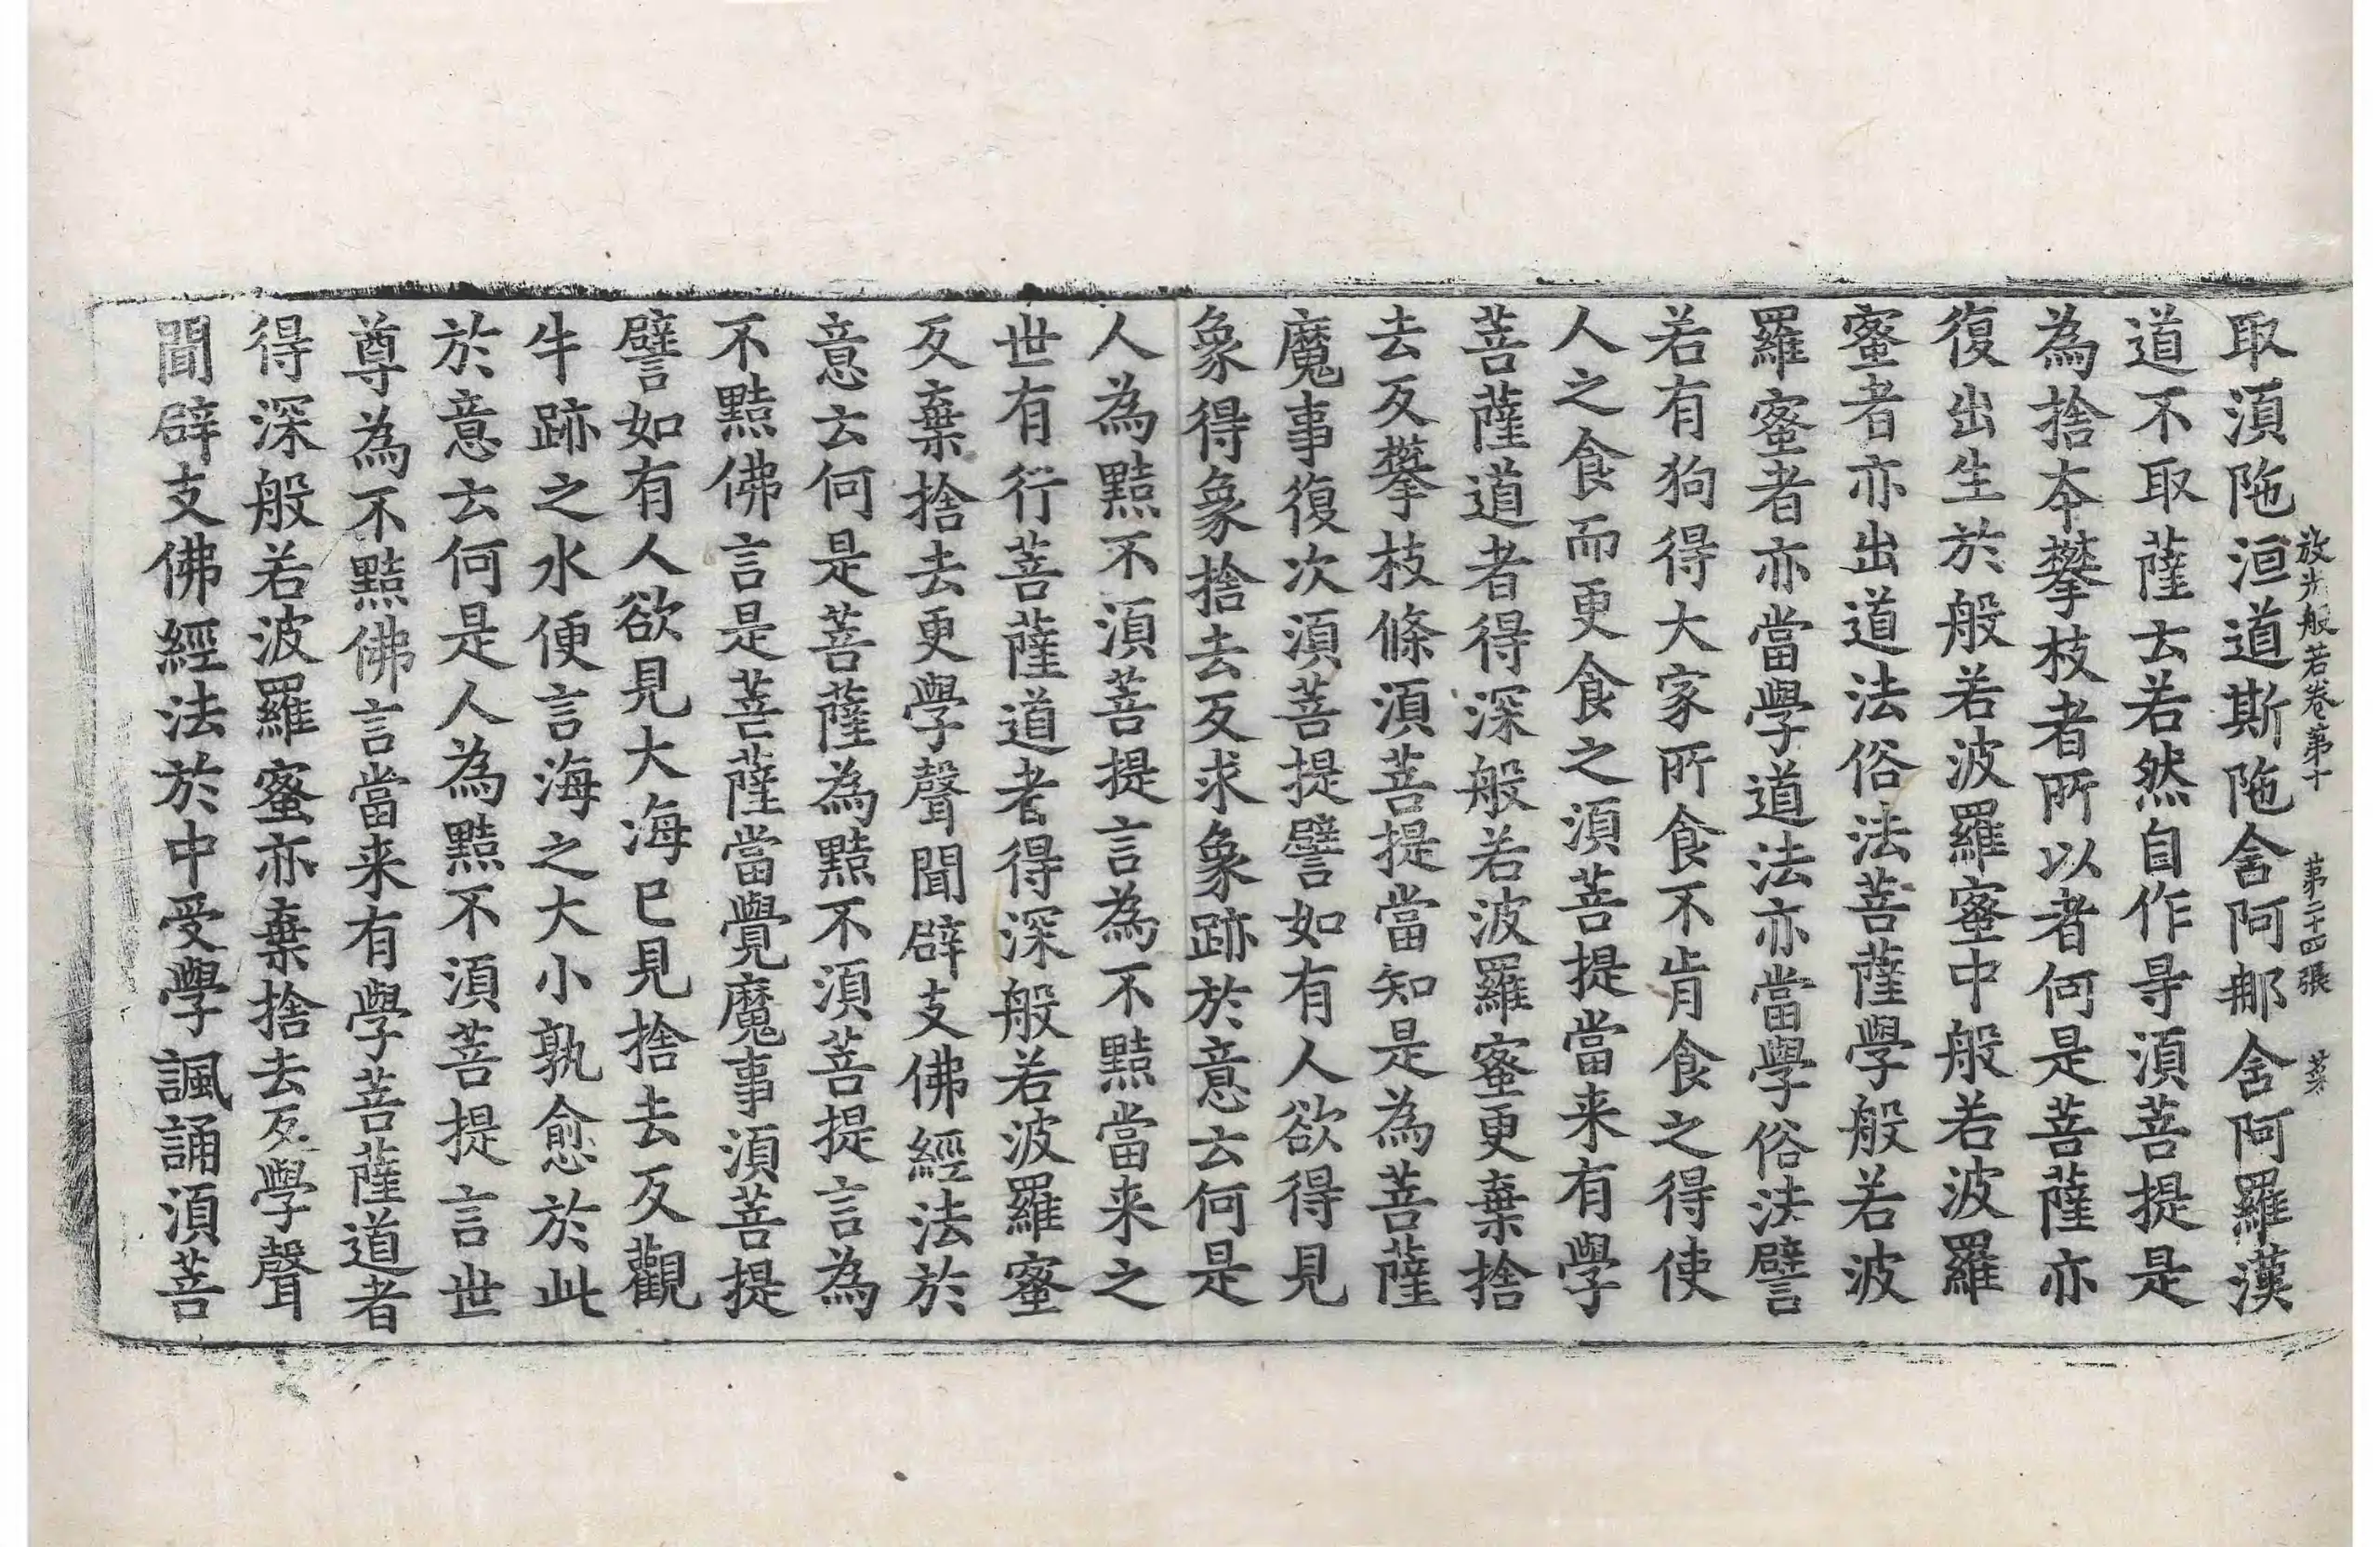 放光般若卷第十　第二十四張　菜
取湏陁洹道斯陁舍阿那舍阿羅漢
道不取薩云若然自作㝵湏菩提是
為捨本攀枝者所以者何是菩薩亦
復出生於般若波羅蜜中般若波羅
蜜者亦出道法俗法菩薩學般若波
羅蜜者亦當學道法亦當學俗法譬
若有狗得大家所食不肯食之得使
人之食而更食之湏菩提當来有學
菩薩道者得深般若波羅蜜更棄捨
去反攀枝條湏菩提當知是為菩薩
魔事復次湏菩提譬如有人欲得見
象得象捨去反求象跡於意云何是
人為黠不湏菩提言為不黠當来之
世有行菩薩道者得深般若波羅蜜
反棄捨去更學聲聞辟支佛經法於
意云何是菩薩為黠不湏菩提言為
不黠佛言是菩薩當覺魔事湏菩提
譬如有人欲見大海已見捨去反觀
牛跡之水便言海之大小孰愈於此
於意云何是人為黠不湏菩提言世
尊為不黠佛言當来有學菩薩道者
得深般若波羅蜜亦棄捨去反學聲
聞辟支佛經法於中受學諷誦湏菩